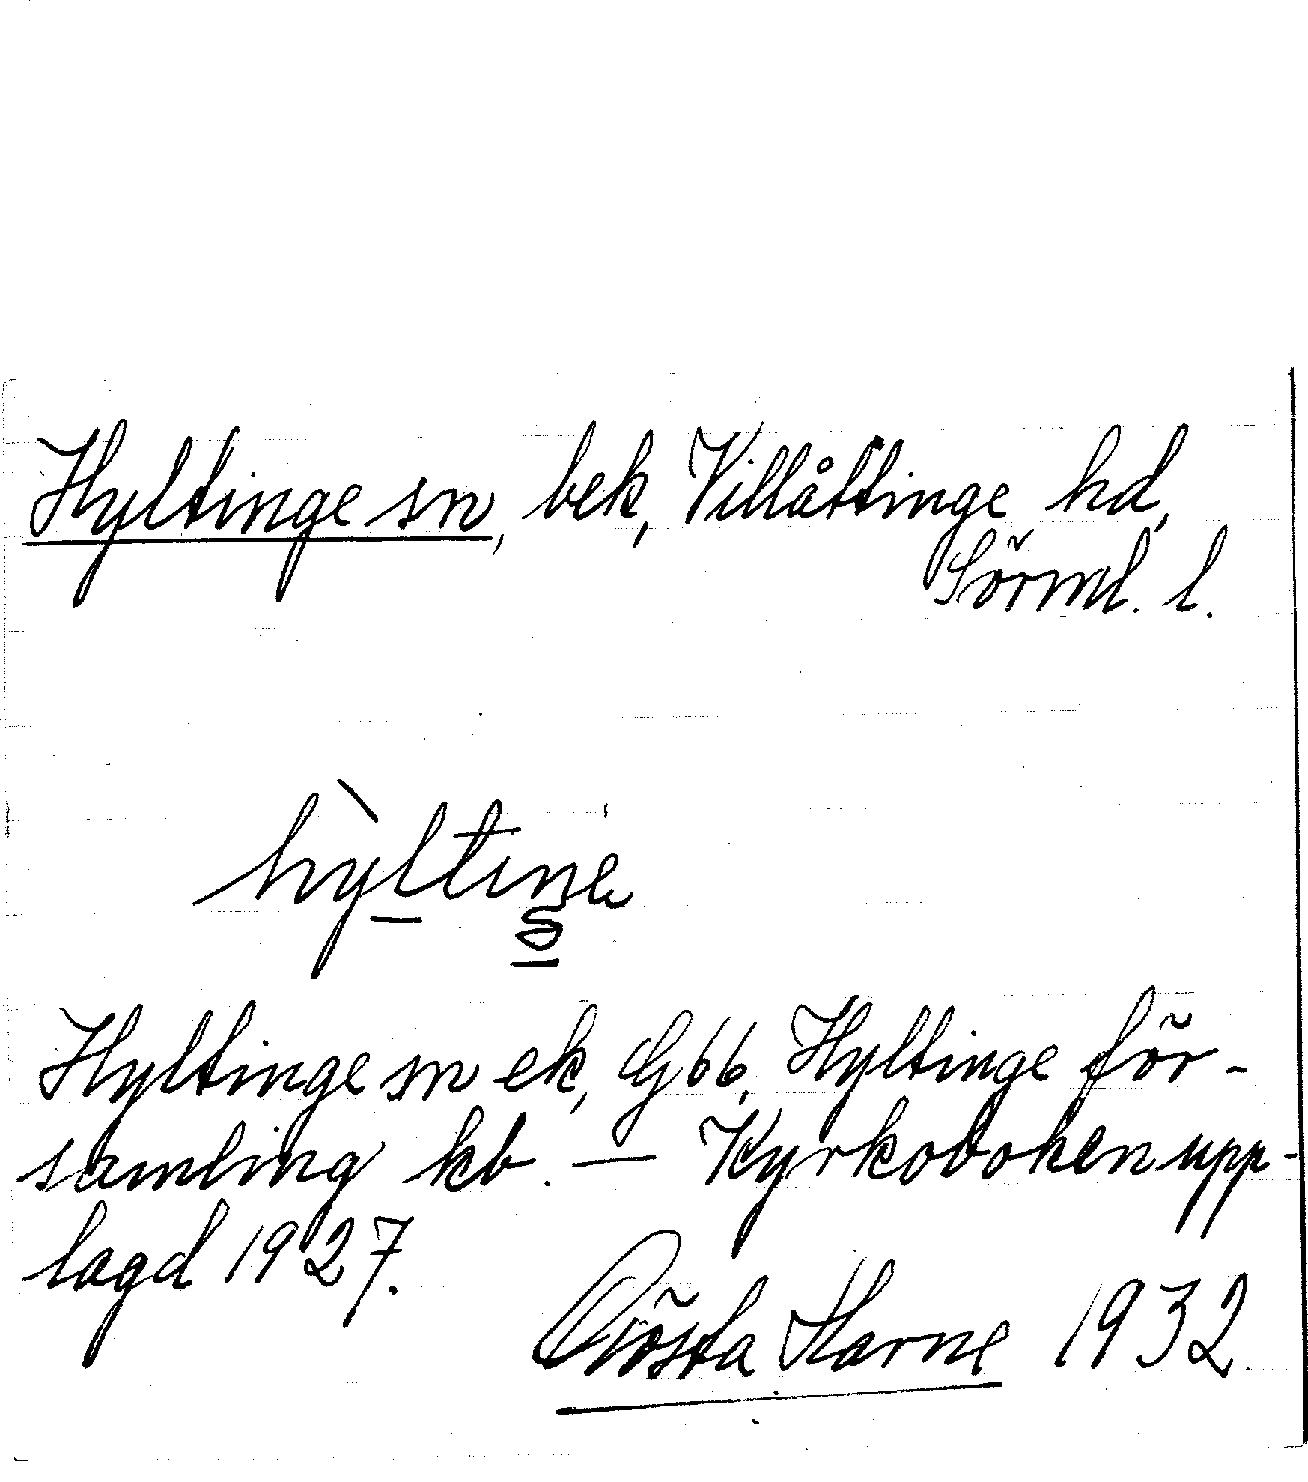 Hyltinge sn, bek, Villåttinge hd,
Sörml. l.
Hyltinge sn ek, G66, Hyltinge för-
samling kb. — Kyrkoboken upp-
lagd 1927.
Gösta Harne 1932